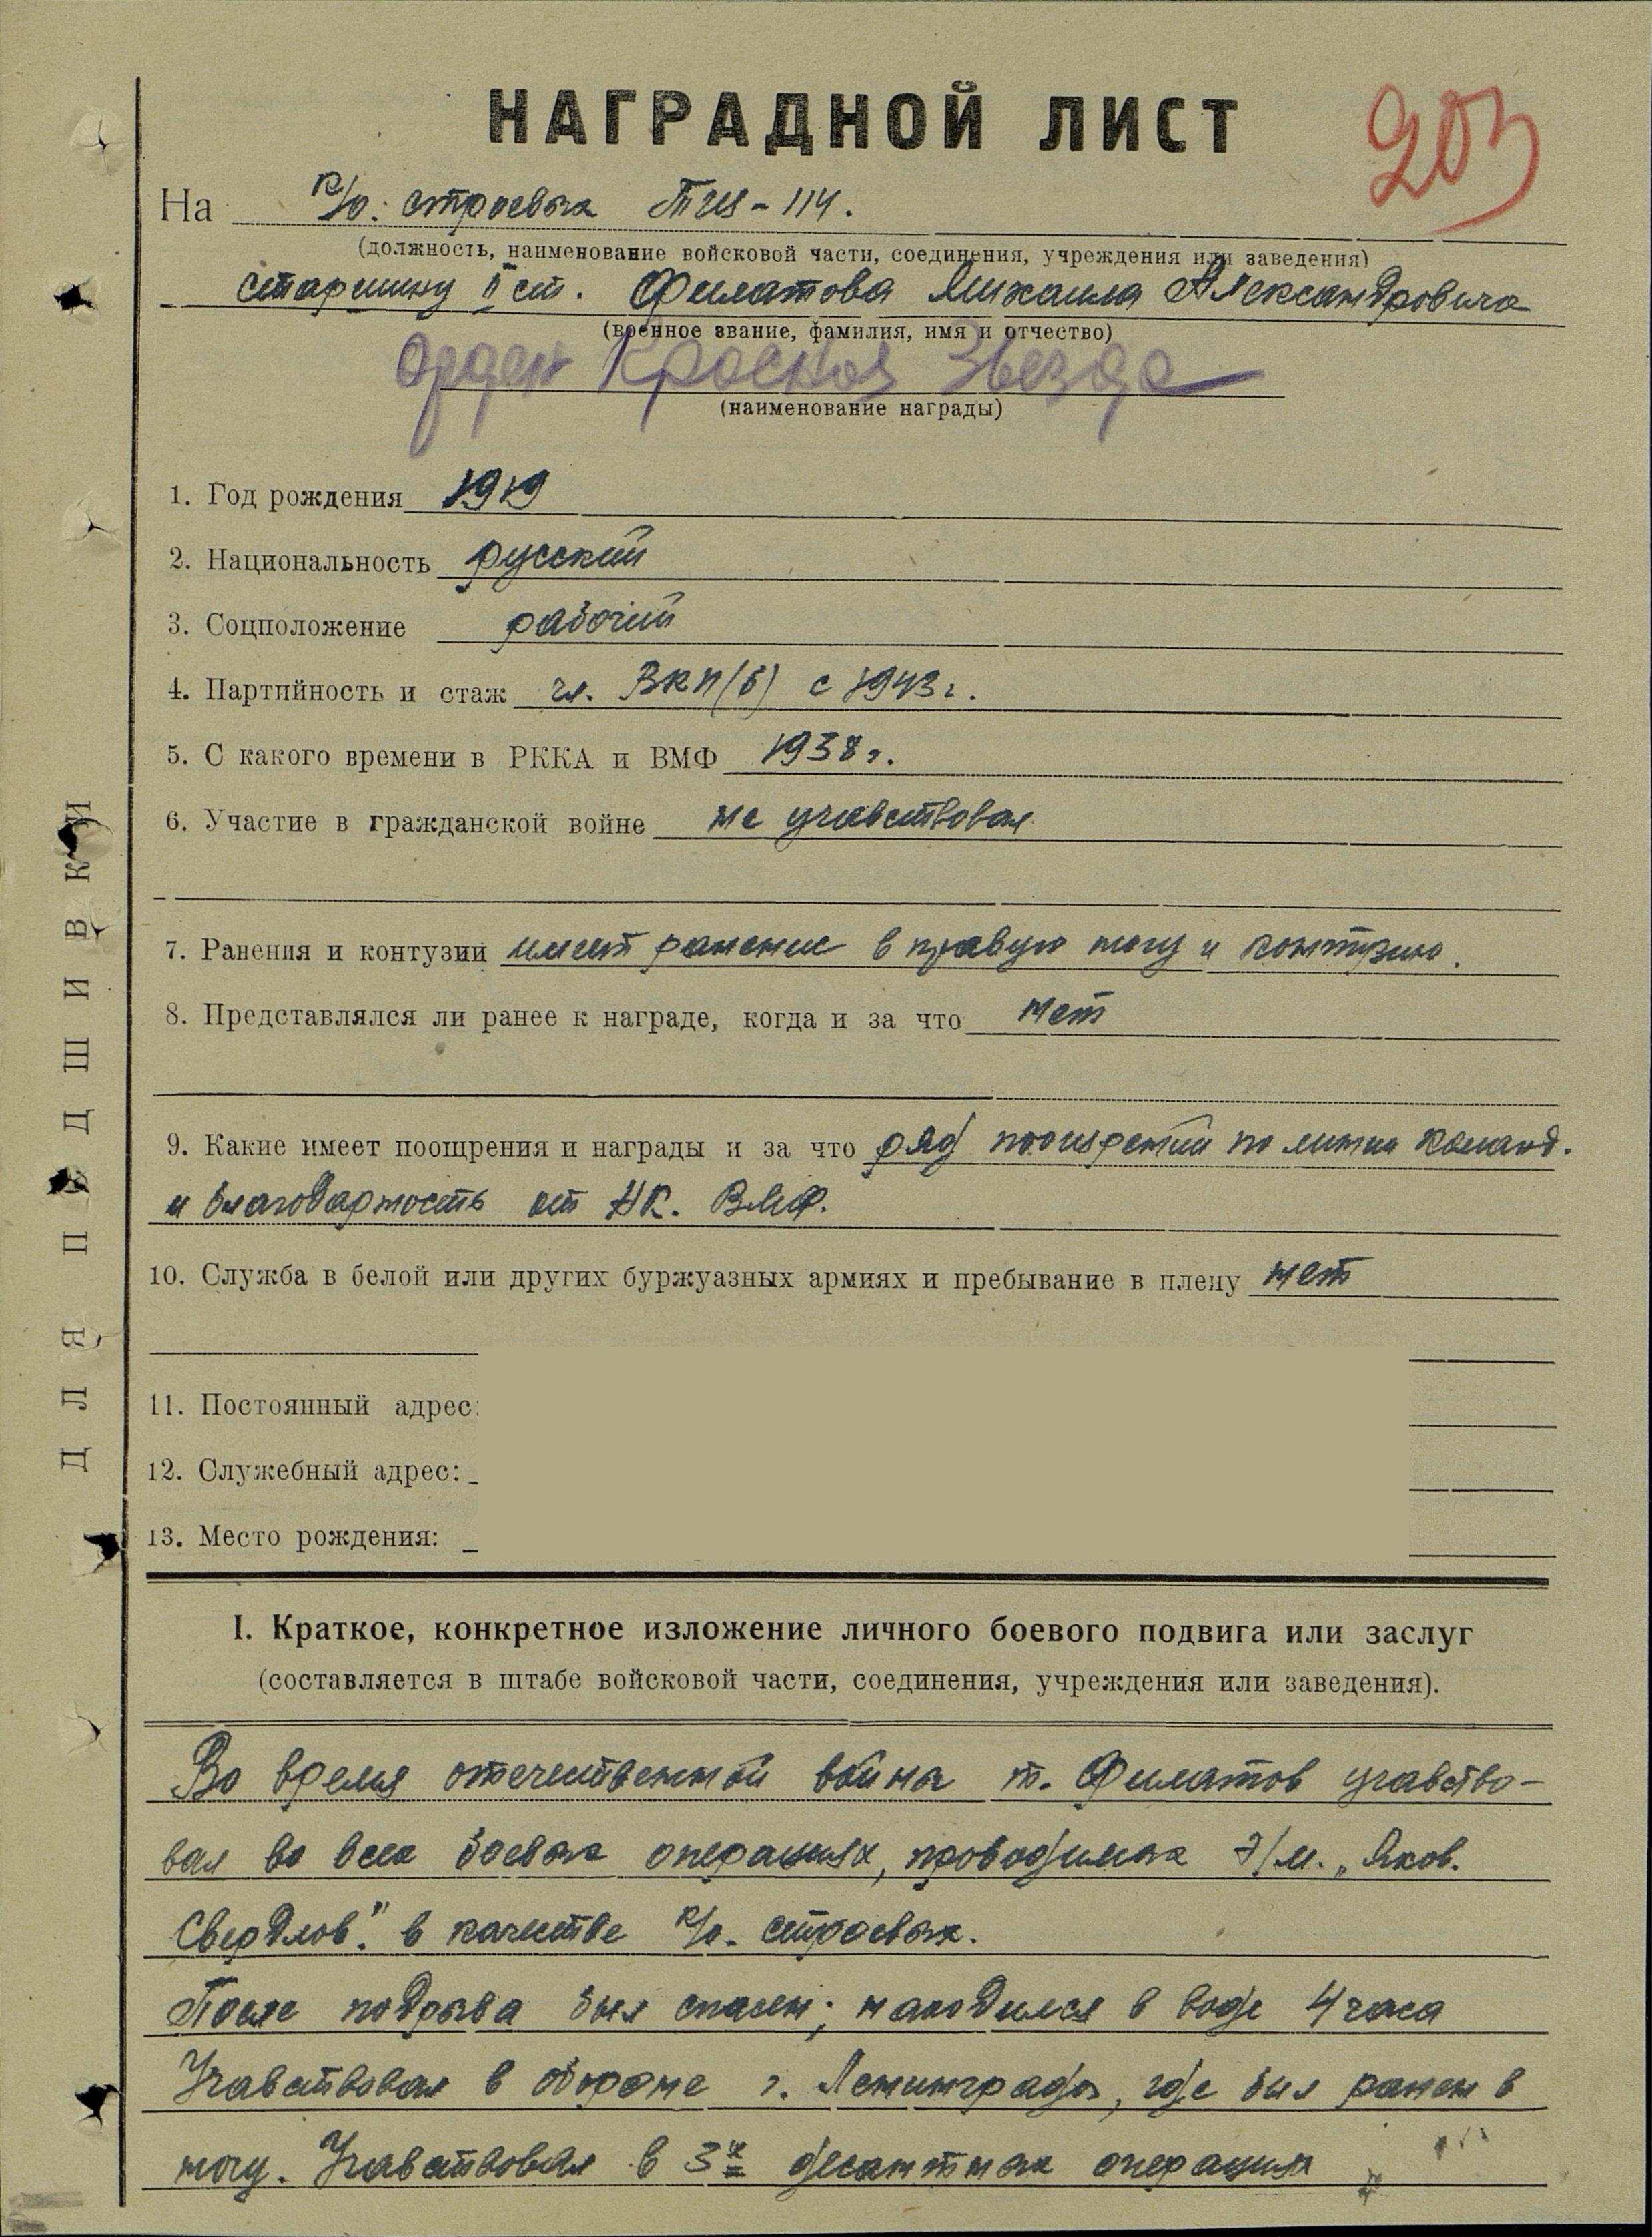 НАГРАДНОЙ ЛИСТ
203
На к/о. строевых ТЩ-114.
(должность, наименование войсковой части, соединения, учреждения или заведения)
старшину II ст. Филатова Михаила Александровича
(военное звание, фамилия, имя и отчество)
орден Красная Звезда
(наименование награды)
1. Год рождения 1919
2. Национальность русский
3. Соцположение рабочий
4. Партийность и стаж чл. ВКП(б) с 1943 г.
5. С какого времени в РККА и ВМФ 1938 г.
6. Участие в гражданской войне не учавствовал
7. Ранения и контузии имеет ранение в правую ногу и контузию.
8. Представлялся ли ранее к награде, когда и за что нет
9. Какие имеет поощрения и награды и за что ряд поощрений по линии команд.
и благодарность от НК. ВМФ.
10. Служба в белой или других буржуазных армиях и пребывание в плену нет
11. Постоянный адрес:
12. Служебный адрес:
13. Место рождения:
ДЛЯ ПОДШИВКИ
I. Краткое, конкретное изложение личного боевого подвига или заслуг
(составляется в штабе войсковой части, соединения, учреждения или заведения).
Во время отечественной войны т. Филатов учавство-
вал во всех боевых операциях, проводимых Э/м. „Яков.
Свердлов". в качестве к/о. строевых.
После подрыва был спасен; находился в воде 4 часа
Учавствовал в обороне г. Ленинграда, где был ранен в
ногу. Учавствовал в 3х десантных операциях